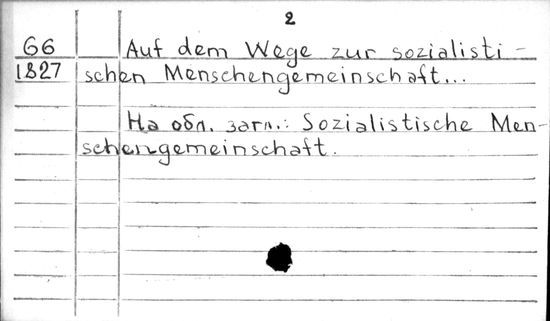 2
G6 Auf dem Wege zur sozialisti-
1827 schen Menschengemeinschaft...
На обл. загл.: Sozialistische Men-
schengemeinschaft.